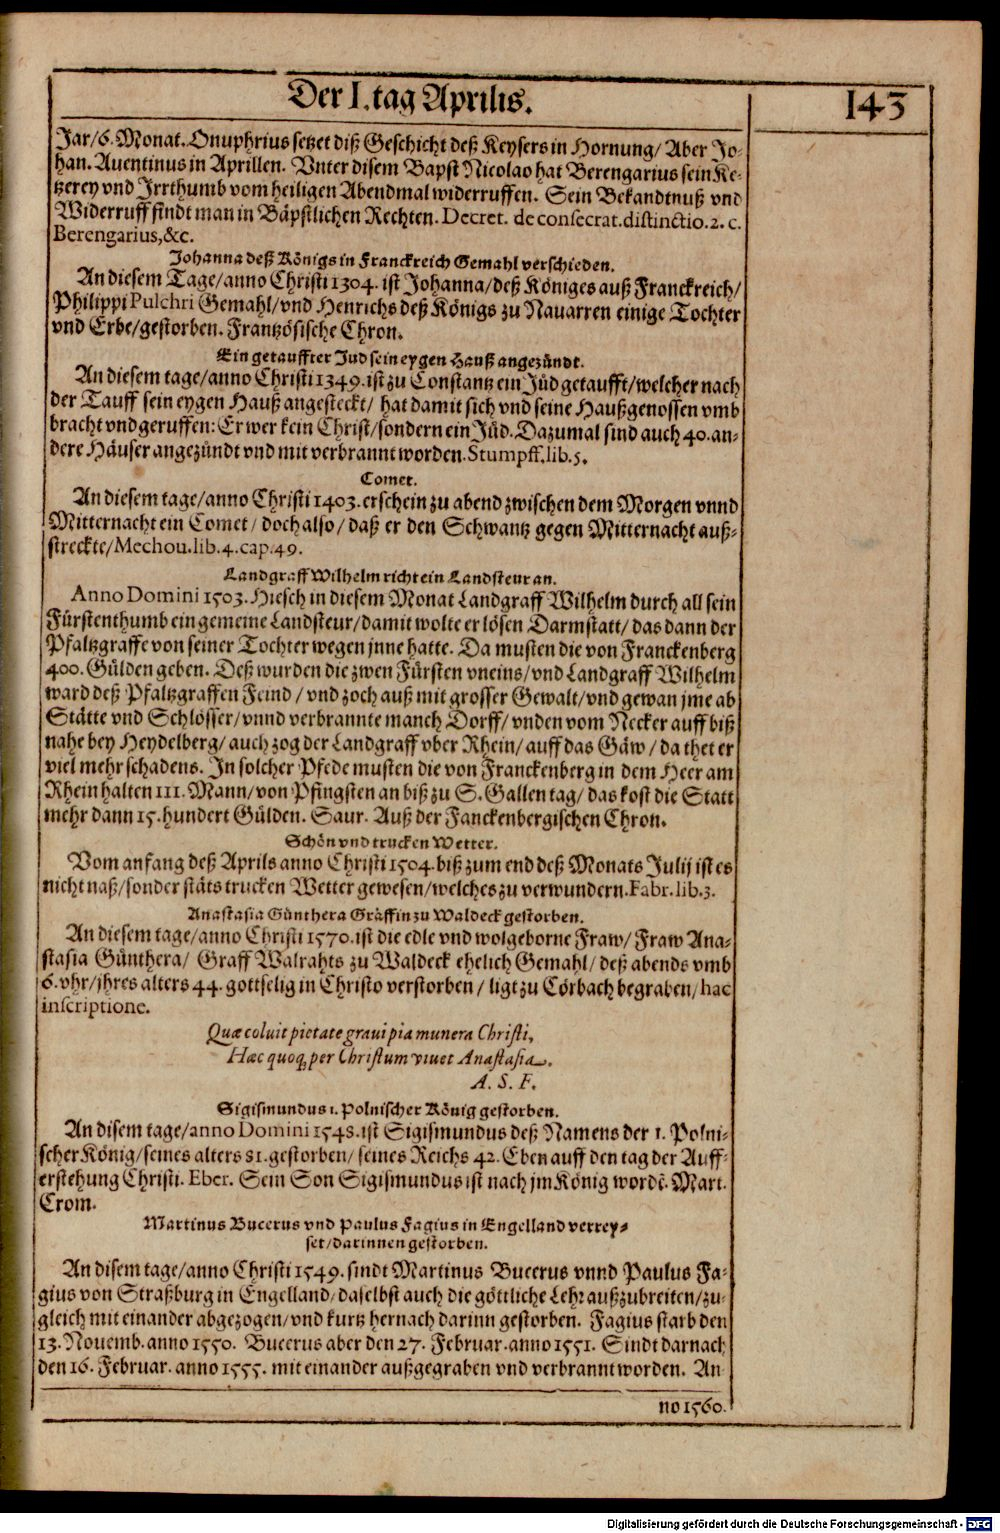 Der I. tag Aprilis.
143
Jar/6. Monat. Onuphrius setzet diß Geschicht deß Keysers in Hornung/ Aber Jo-
han. Auentinus in Aprillen. Vnter disem Bapst Nicolao hat Berengarius sein Ke-
tzerey vnd Irrthumb vom heiligen Abendmal widerruffen. Sein Bekandtnuß vnd
Widerruff findt man in Bäpstlichen Rechten. Decret. de consecrat. distinctio. 2. c.
Berengarius, &c.
Johanna deß Königs in Franckreich Gemahl verschieden.
An diesem Tage/anno Christi 1304. ist Johanna/deß Königes auß Franckreich/
Philippi Pulchri Gemahl/vnd Henrichs deß Königs zu Nauarren einige Tochter
vnd Erbe/gestorben. Frantzösische Chron.
Ein getauffter Jud sein eygen Hauß angezündt.
An diesem tage/anno Christi 1349. ist zu Constantz ein Jüd getaufft/welcher nach
der Tauff sein eygen Hauß angesteckt/ hat damit sich vnd seine Haußgenossen vmb
bracht vnd geruffen: Er wer kein Christ/sondern ein Jüd. Dazumal sind auch 40. an-
dere Häuser angezündt vnd mit verbrannt worden. Stumpff. lib. 5.
Comet.
An diesem tage/anno Christi 1403. erschein zu abend zwischen dem Morgen vnnd
Mitternacht ein Comet/ doch also/ daß er den Schwantz gegen Mitternacht auß-
streckte/ Mechou. lib. 4. cap. 49.
Landgraff Wilhelm richt ein Landsteur an.
Anno Domini 1503. Hiesch in diesem Monat Landgraff Wilhelm durch all sein
Fürstenthumb ein gemeine Landsteur/damit wolte er lösen Darmstatt/ das dann der
Pfaltzgraffe von seiner Tochter wegen jnne hatte. Da musten die von Franckenberg
400. Gülden geben. Deß wurden die zwen Fürsten vneins/vnd Landgraff Wilhelm
ward deß Pfaltzgraffen Feind/ vnd zoch auß mit grosser Gewalt/vnd gewan jme ab
Stätte vnd Schlösser/vnnd verbrannte manch Dorff/ vnden vom Necker auff biß
nahe bey Heydelberg/ auch zog der Landgraff vber Rhein/ auff das Gäw/ da thet er
viel mehr schadens. In solcher Pfede musten die von Franckenberg in dem Heer am
Rhein halten 111. Mann/von Pfingsten an biß zu S. Gallen tag/ das kost die Statt
mehr dann 15. hundert Gülden. Saur. Auß der Fanckenbergischen Chron.
Schön vnd trucken Wetter.
Vom anfang deß Aprils anno Christi 1504. biß zum end deß Monats Julij ist es
nicht naß/sonder stäts trucken Wetter gewesen/welches zu verwundern. Fabr. lib. 3.
Anastasia Günthera Gräffin zu Waldeck gestorben.
An diesem tage/anno Christi 1570. ist die edle vnd wolgeborne Fraw/ Fraw Ana-
stasia Günthera/ Graff Walrahts zu Waldeck ehelich Gemahl/ deß abends vmb
6. vhr/jhres alters 44. gottselig in Christo verstorben/ ligt zu Cörbach begraben/ hac
inscriptione.
Quæ coluit pietate graui pia munera Christi,
Hæc quoq; per Christum viuet Anastasia.
A. S. F.
Sigismundus 1. Polnischer König gestorben.
An disem tage/anno Domini 1548. ist Sigismundus deß Namens der 1. Polni-
scher König/seines alters 81. gestorben/ seines Reichs 42. Eben auff den tag der Auff-
erstehung Christi. Eber. Sein Son Sigismundus ist nach jm König wordē. Mart.
Crom.
Martinus Bucerus vnd Paulus Fagius in Engelland verrey-
set/darinnen gestorben.
An disem tage/anno Christi 1549. sindt Martinus Bucerus vnnd Paulus Fa-
gius von Straßburg in Engelland/daselbst auch die göttliche Lehr außzubreiten/zu-
gleich mit einander abgezogen/vnd kurtz hernach darinn gestorben. Fagius starb den
13. Nouemb. anno 1550. Bucerus aber den 27. Februar. anno 1551. Sindt darnach
den 16. Februar. anno 1555. mit einander außgegraben vnd verbrannt worden. An-
no 1560.
Digitalisierung gefördert durch die Deutsche Forschungsgemeinschaft - DFG